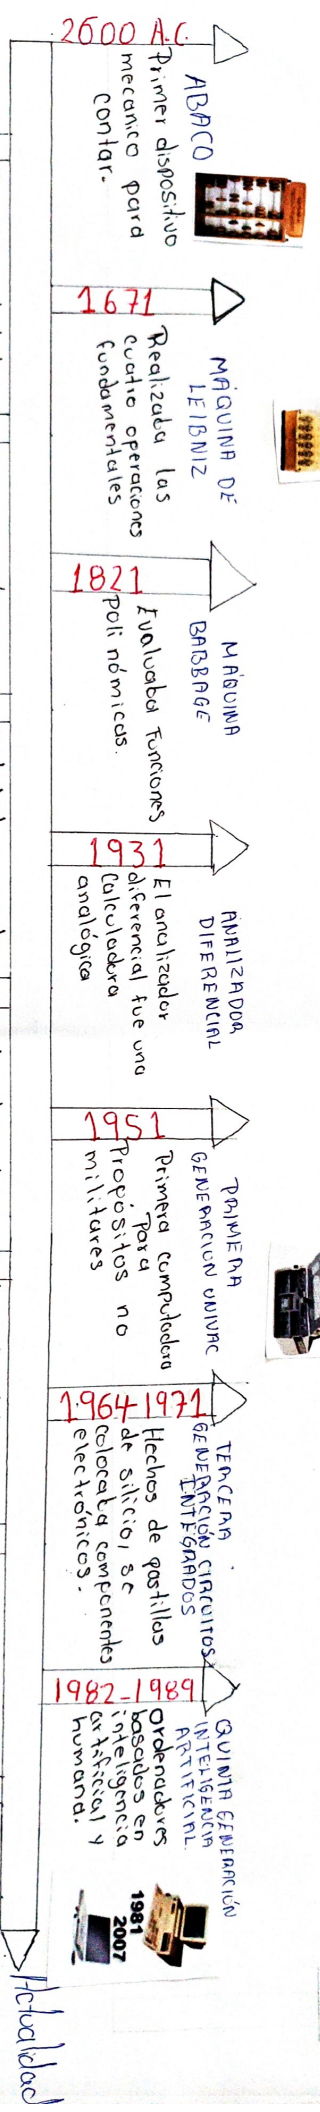 2600 A.C.
ABACO
Primer dispositivo
mecanico para
contar.
1671
MAQUINA DE
LEIBNIZ
Realizaba las
cuatro operaciones
fundamentales
1821
MAQUINA
BABBAGE
Evaluaba Funciones
polinómicas.
1931
ANALIZADOR
DIFERENCIAL
El analizador
diferencial fue una
Calculadora
analógica
1951
PRIMERA
GENERACION UNIVAC
Primera computadora
para
Propósitos no
militares
1964-1971
TERCERA
GENERACIÓN CIRCUITOS
INTEGRADOS
Hechos de pastillas
de silicio, se
colocaba componentes
electrónicos.
1982-1989
QUINTA GENERACIÓN
INTELIGENCIA
ARTIFICIAL
ordenadores
basados en
inteligencia
artificial y
humana.
1981
2007
Actualidad